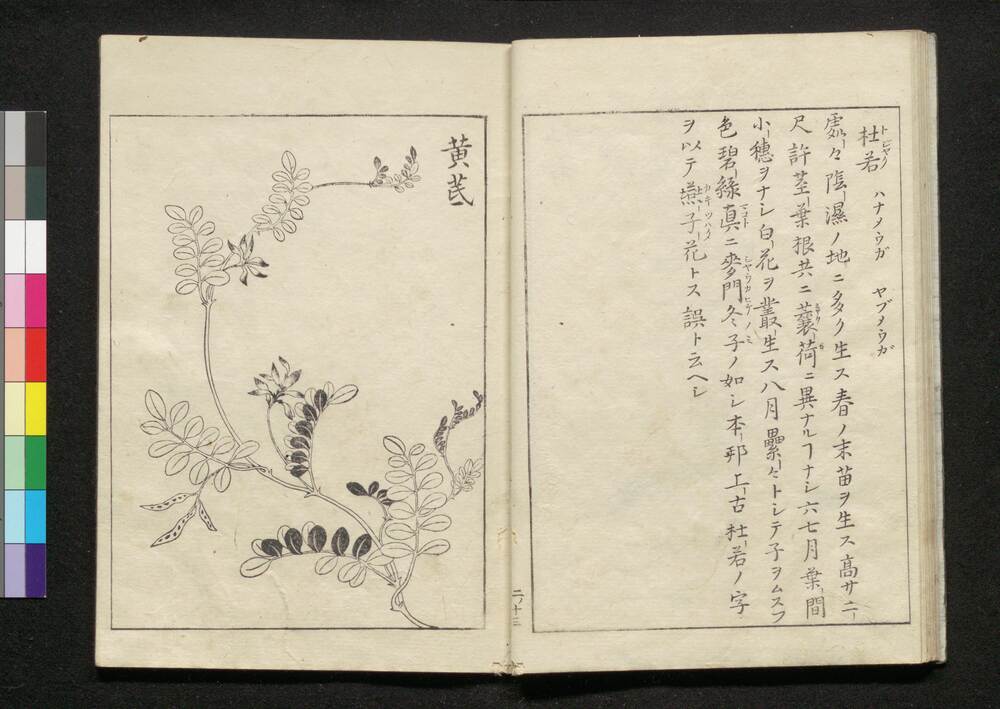 杜若 トジヤク ハナメウガ ヤブメウガ
處々陰濕ノ地ニ多ク生ス春ノ末苗ヲ生ス髙サ二
尺許莖葉根共ニ蘘荷ニ異ナルヿナシ六七月葉間
小穗ヲナシ白花ヲ叢生ス八月纍々トシテ子ヲムスフ
色碧綠真ニ麥門冬子ノ如シ本邦上古杜若ノ字
ヲ以テ燕子花トス誤ト云ヘシ
黄芪
二ノ十三